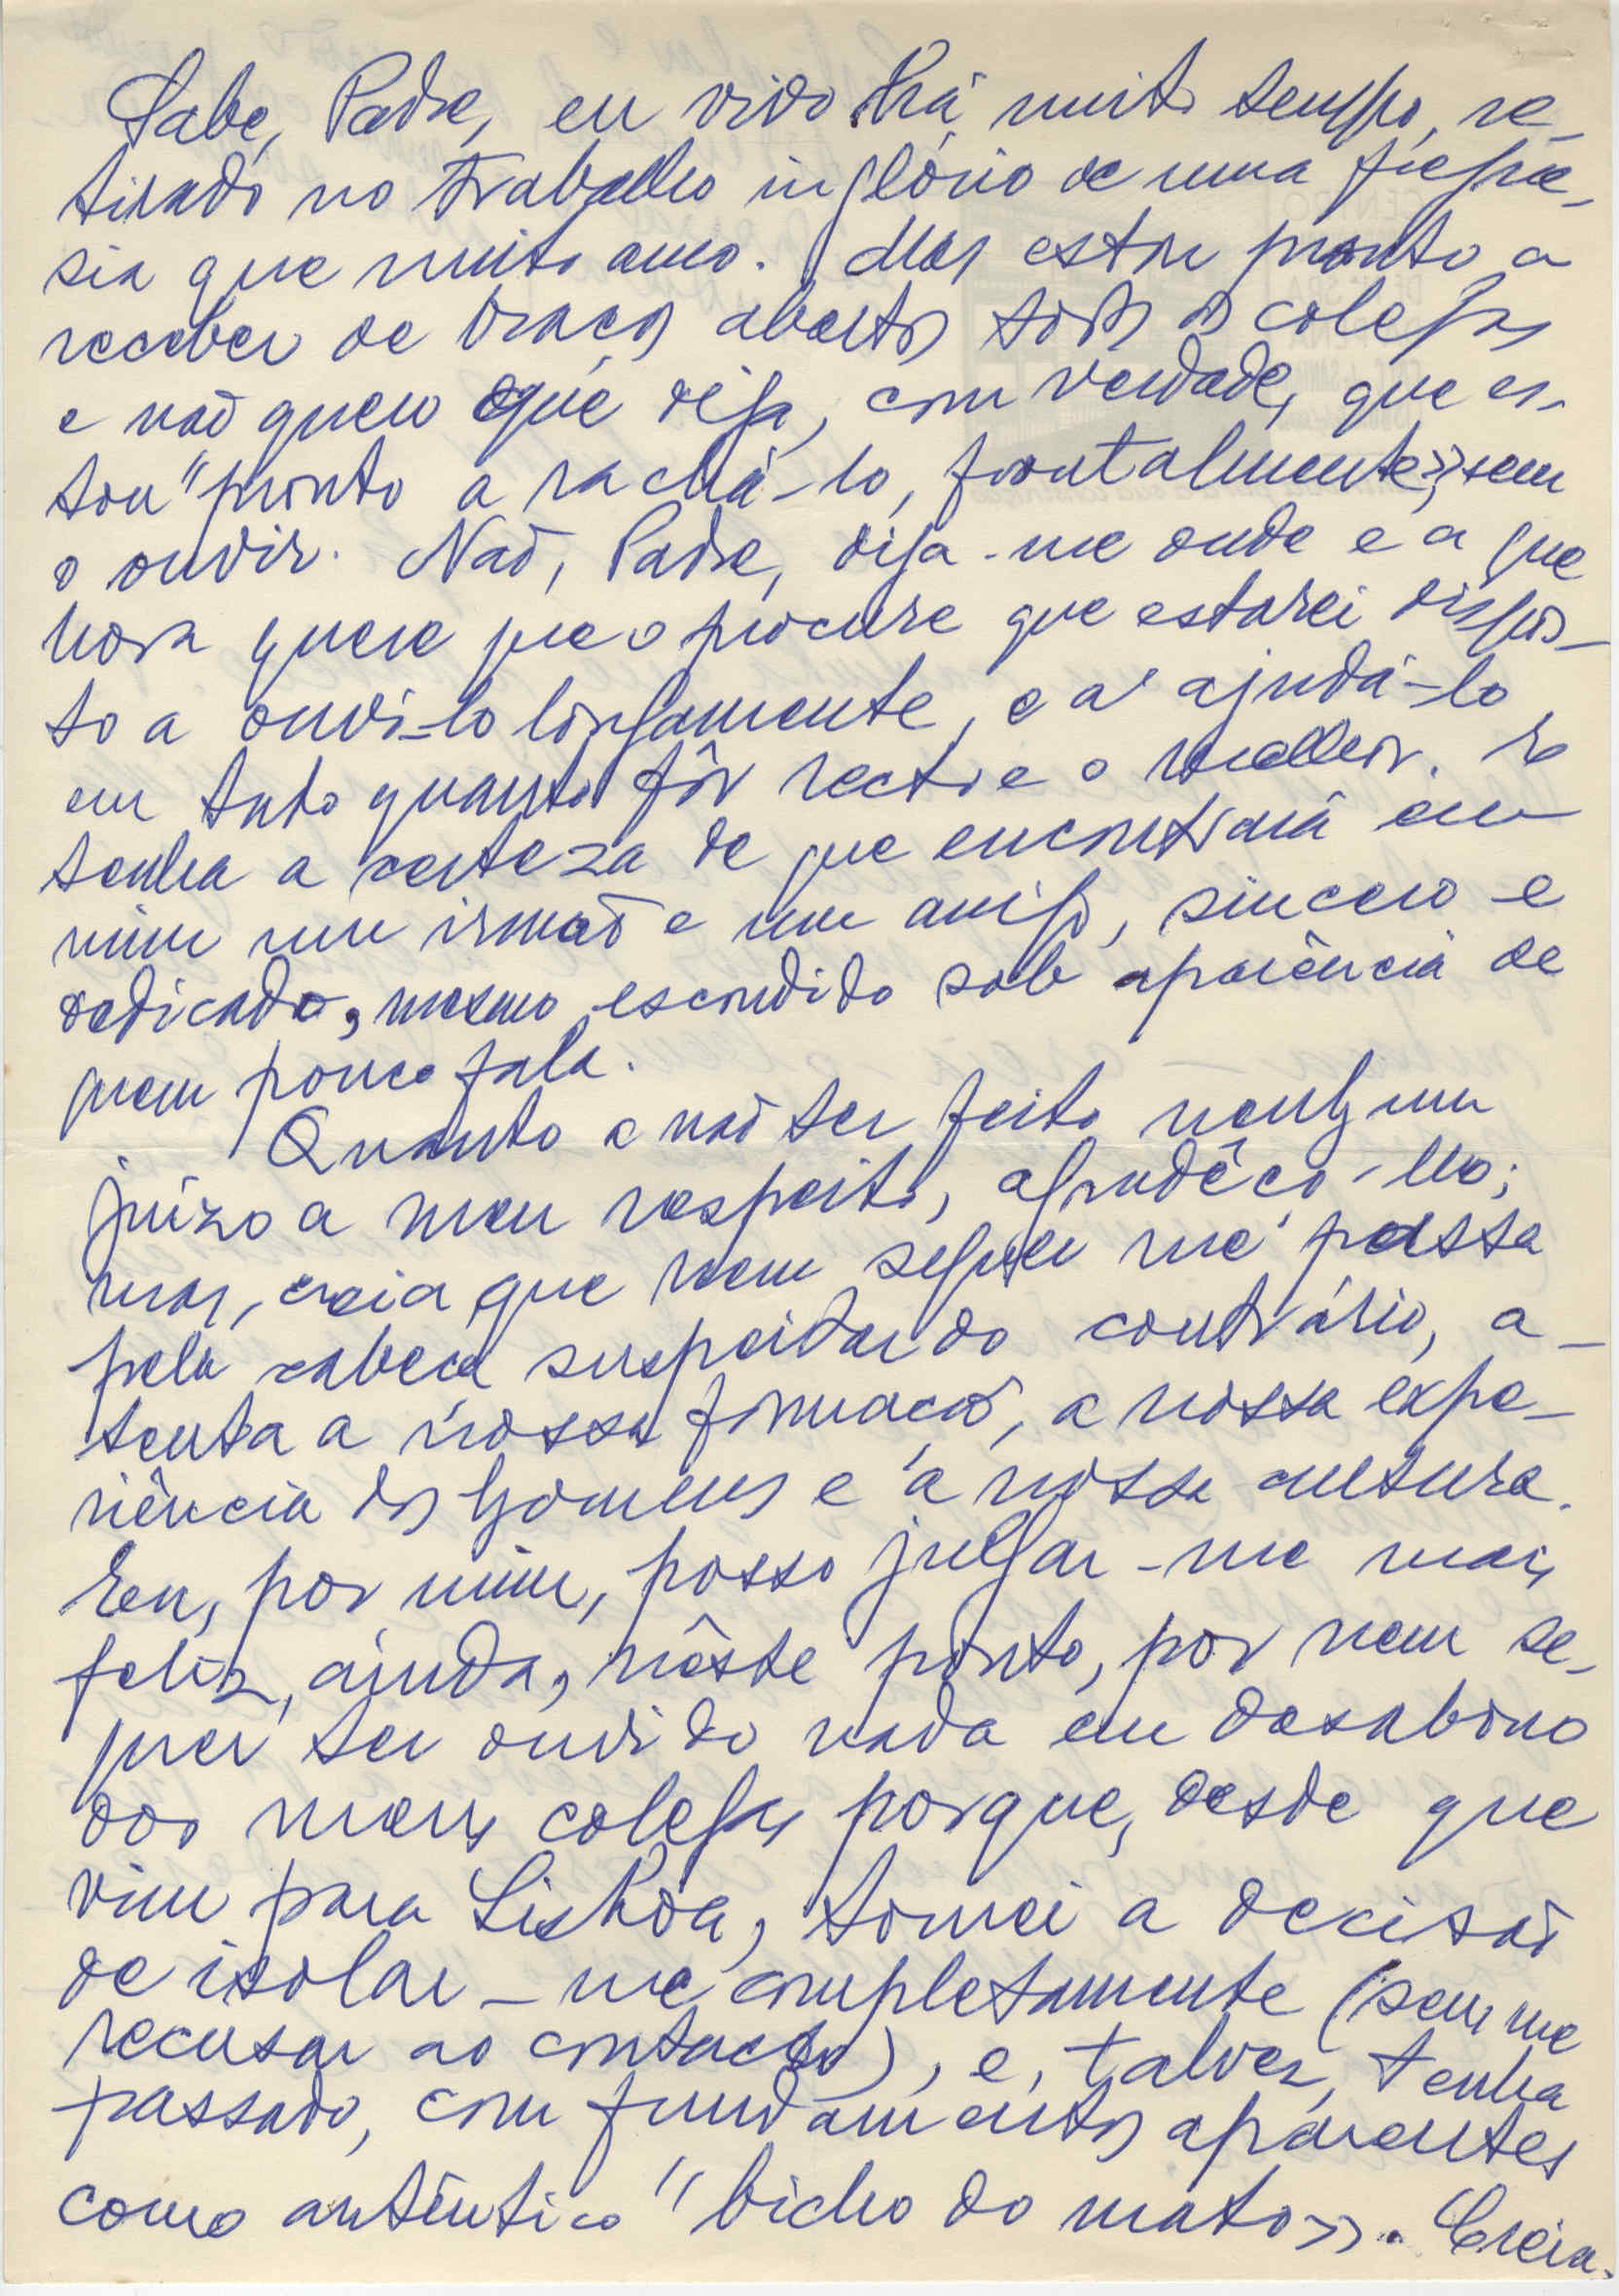 Sabe, Padre, eu vivo há muito tempo, re-
tirado no trabalho inglório de uma fregue-
sia que muito amo. Mas estou pronto a
receber de braços abertos todos os colegas
e não quero que diga, com verdade, que es-
tou "pronto a rachá-lo, frontalmente», sem
o ouvir. Não, Padre, diga-me onde e a que
hora quere que o procure que estarei dispos-
to a ouvi-lo longamente, e a ajudá-lo
em tudo quanto fôr recto e o melhor. E
tenha a certeza de que encontrará em
mim um irmão e um amigo, sincero e
dedicado, mesmo escondido sob aparência de
quem pouco fala.
Quanto a não ter feito nenhum
juízo a meu respeito, agradêço-lho;
mas, creia que nem sequer me passa
pela cabeça suspeitar do contrário, a-
tenta a nossa formação, a nossa expe-
riência dos homens e a nossa cultura.
Eu, por mim, posso julgar-me mais
feliz, ainda, nêste ponto, por nem se-
quer ter ouvido nada em desabono
dos meus colegas porque, desde que
vim para Lisboa, tomei a decisão
de isolar-me completamente (sem me
recusar ao contacto), e, talvez, tenha
passado, com fundamentos aparentes
como autêntico "bicho do mato». Creia.